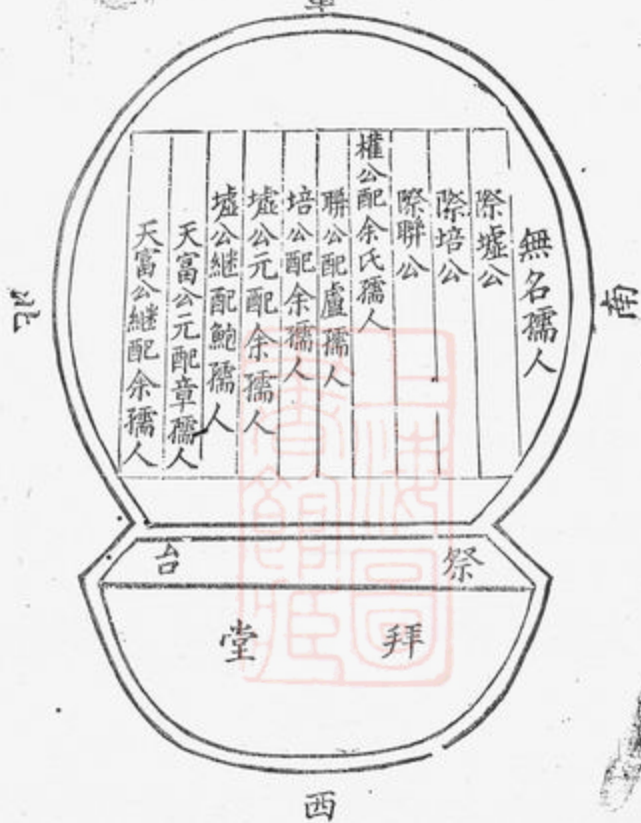 南
無名孺人
際墟公
際培公
際聯公
權公配余氏孺人
聯公配盧孺人
培公配余孺人
墟公元配余孺人
墟公継配鮑孺人
天富公元配章孺人
天富公継配余孺人
北
祭台
拜堂
西
上海圖
書館藏